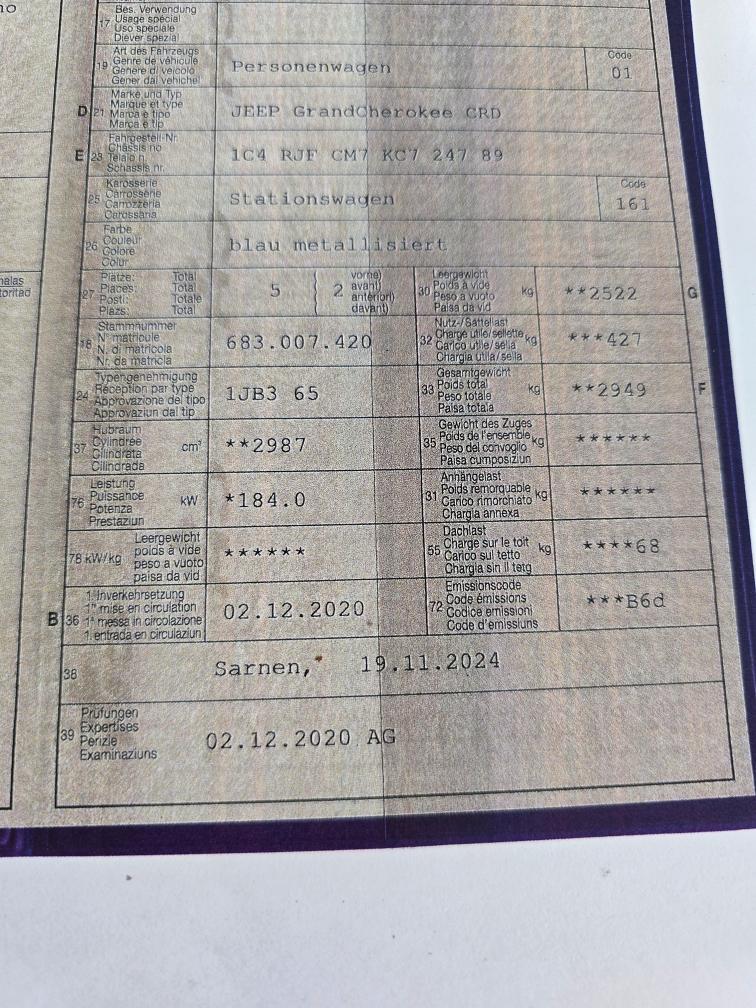 no
nalas
toritad
Bes. Verwendung
17 Usage spécial
Uso speciale
Diever spezial
Art des Fahrzeugs
19 Genre de véhicule
Genere di veicolo
Gener dal vehichel
Personenwagen
Code
01
Marke und Typ
D 21 Marque et type
Marca e tipo
Marca e tip
JEEP GrandCherokee CRD
Fahrgestell-Nr.
E 23 Châssis no
Telaio n.
Schassis nr.
1C4 RJF CM7 KC7 247 89
Karosserie
25 Carrosserie
Carrozzeria
Carossaria
Stationswagen
Code
161
Farbe
26 Couleur
Colore
Colur
blau metallisiert
Plätze: Total
27 Places: Total
Posti: Totale
Plazs: Total
5
2 vorne)
avant)
anteriori)
davant)
Leergewicht
30 Poids à vide kg
Peso a vuoto
Paisa da vid
**2522 G
Stammnummer
18 N° matricule
N. di matricola
Nr. da matricla
683.007.420
Nutz-/Sattellast
32 Charge utile/sellette kg
Carico utile/sella
Chargia utila/sella
***427
Typengenehmigung
24 Réception par type
Approvazione del tipo
Approvaziun dal tip
1JB3 65
Gesamtgewicht
33 Poids total kg
Peso totale
Paisa totala
**2949 F
Hubraum
37 Cylindrée cm³
Cilindrata
Cilindrada
**2987
Gewicht des Zuges
35 Poids de l'ensemble kg
Peso del convoglio
Paisa cumposiziun
******
Leistung
76 Puissance kW
Potenza
Prestaziun
*184.0
Anhängelast
31 Poids remorquable kg
Carico rimorchiato
Chargia annexa
******
Leergewicht
78 kW/kg poids à vide
peso a vuoto
paisa da vid
******
Dachlast
55 Charge sur le toit kg
Carico sul tetto
Chargia sin il tetg
****68
1. Inverkehrsetzung
B 36 1re mise en circulation
1a messa in circolazione
1. entrada en circulaziun
02.12.2020
Emissionscode
72 Code émissions
Codice emissioni
Code d'emissiuns
***B6d
38 Sarnen, 19.11.2024
Prüfungen
39 Expertises
Perizie
Examinaziuns
02.12.2020 AG